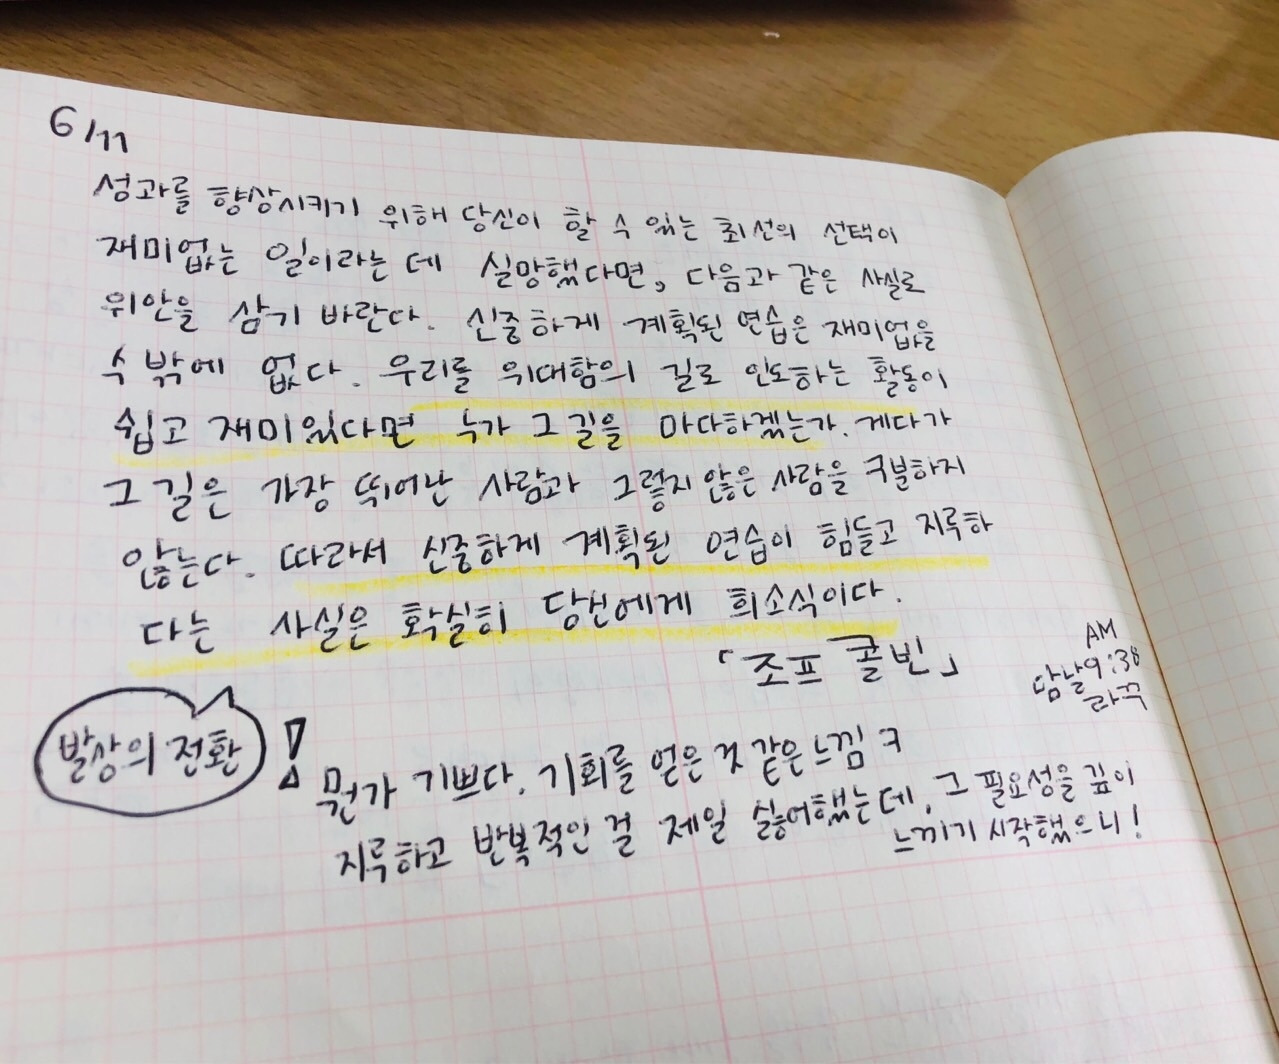 6/11
성과를 향상시키기 위해 당신이 할 수 있는 최선의 선택이
재미없는 일이라는 데 실망했다면, 다음과 같은 사실로
위안을 삼기 바란다. 신중하게 계획된 연습은 재미없을
수 밖에 없다. 우리를 위대함의 길로 인도하는 활동이
쉽고 재미있다면 누가 그 길을 마다하겠는가. 게다가
그 길은 가장 뛰어난 사람과 그렇지 않은 사람을 구분하지
않는다. 따라서 신중하게 계획된 연습이 힘들고 지루하
다는 사실은 확실히 당신에게 희소식이다.
「조프 콜빈」
AM
9:38
발상의 전환!
뭔가 기쁘다. 기회를 얻은 것 같은 느낌 ㅋ
지루하고 반복적인 걸 제일 싫어했는데, 그 필요성을 깊이
느끼기 시작했으니!